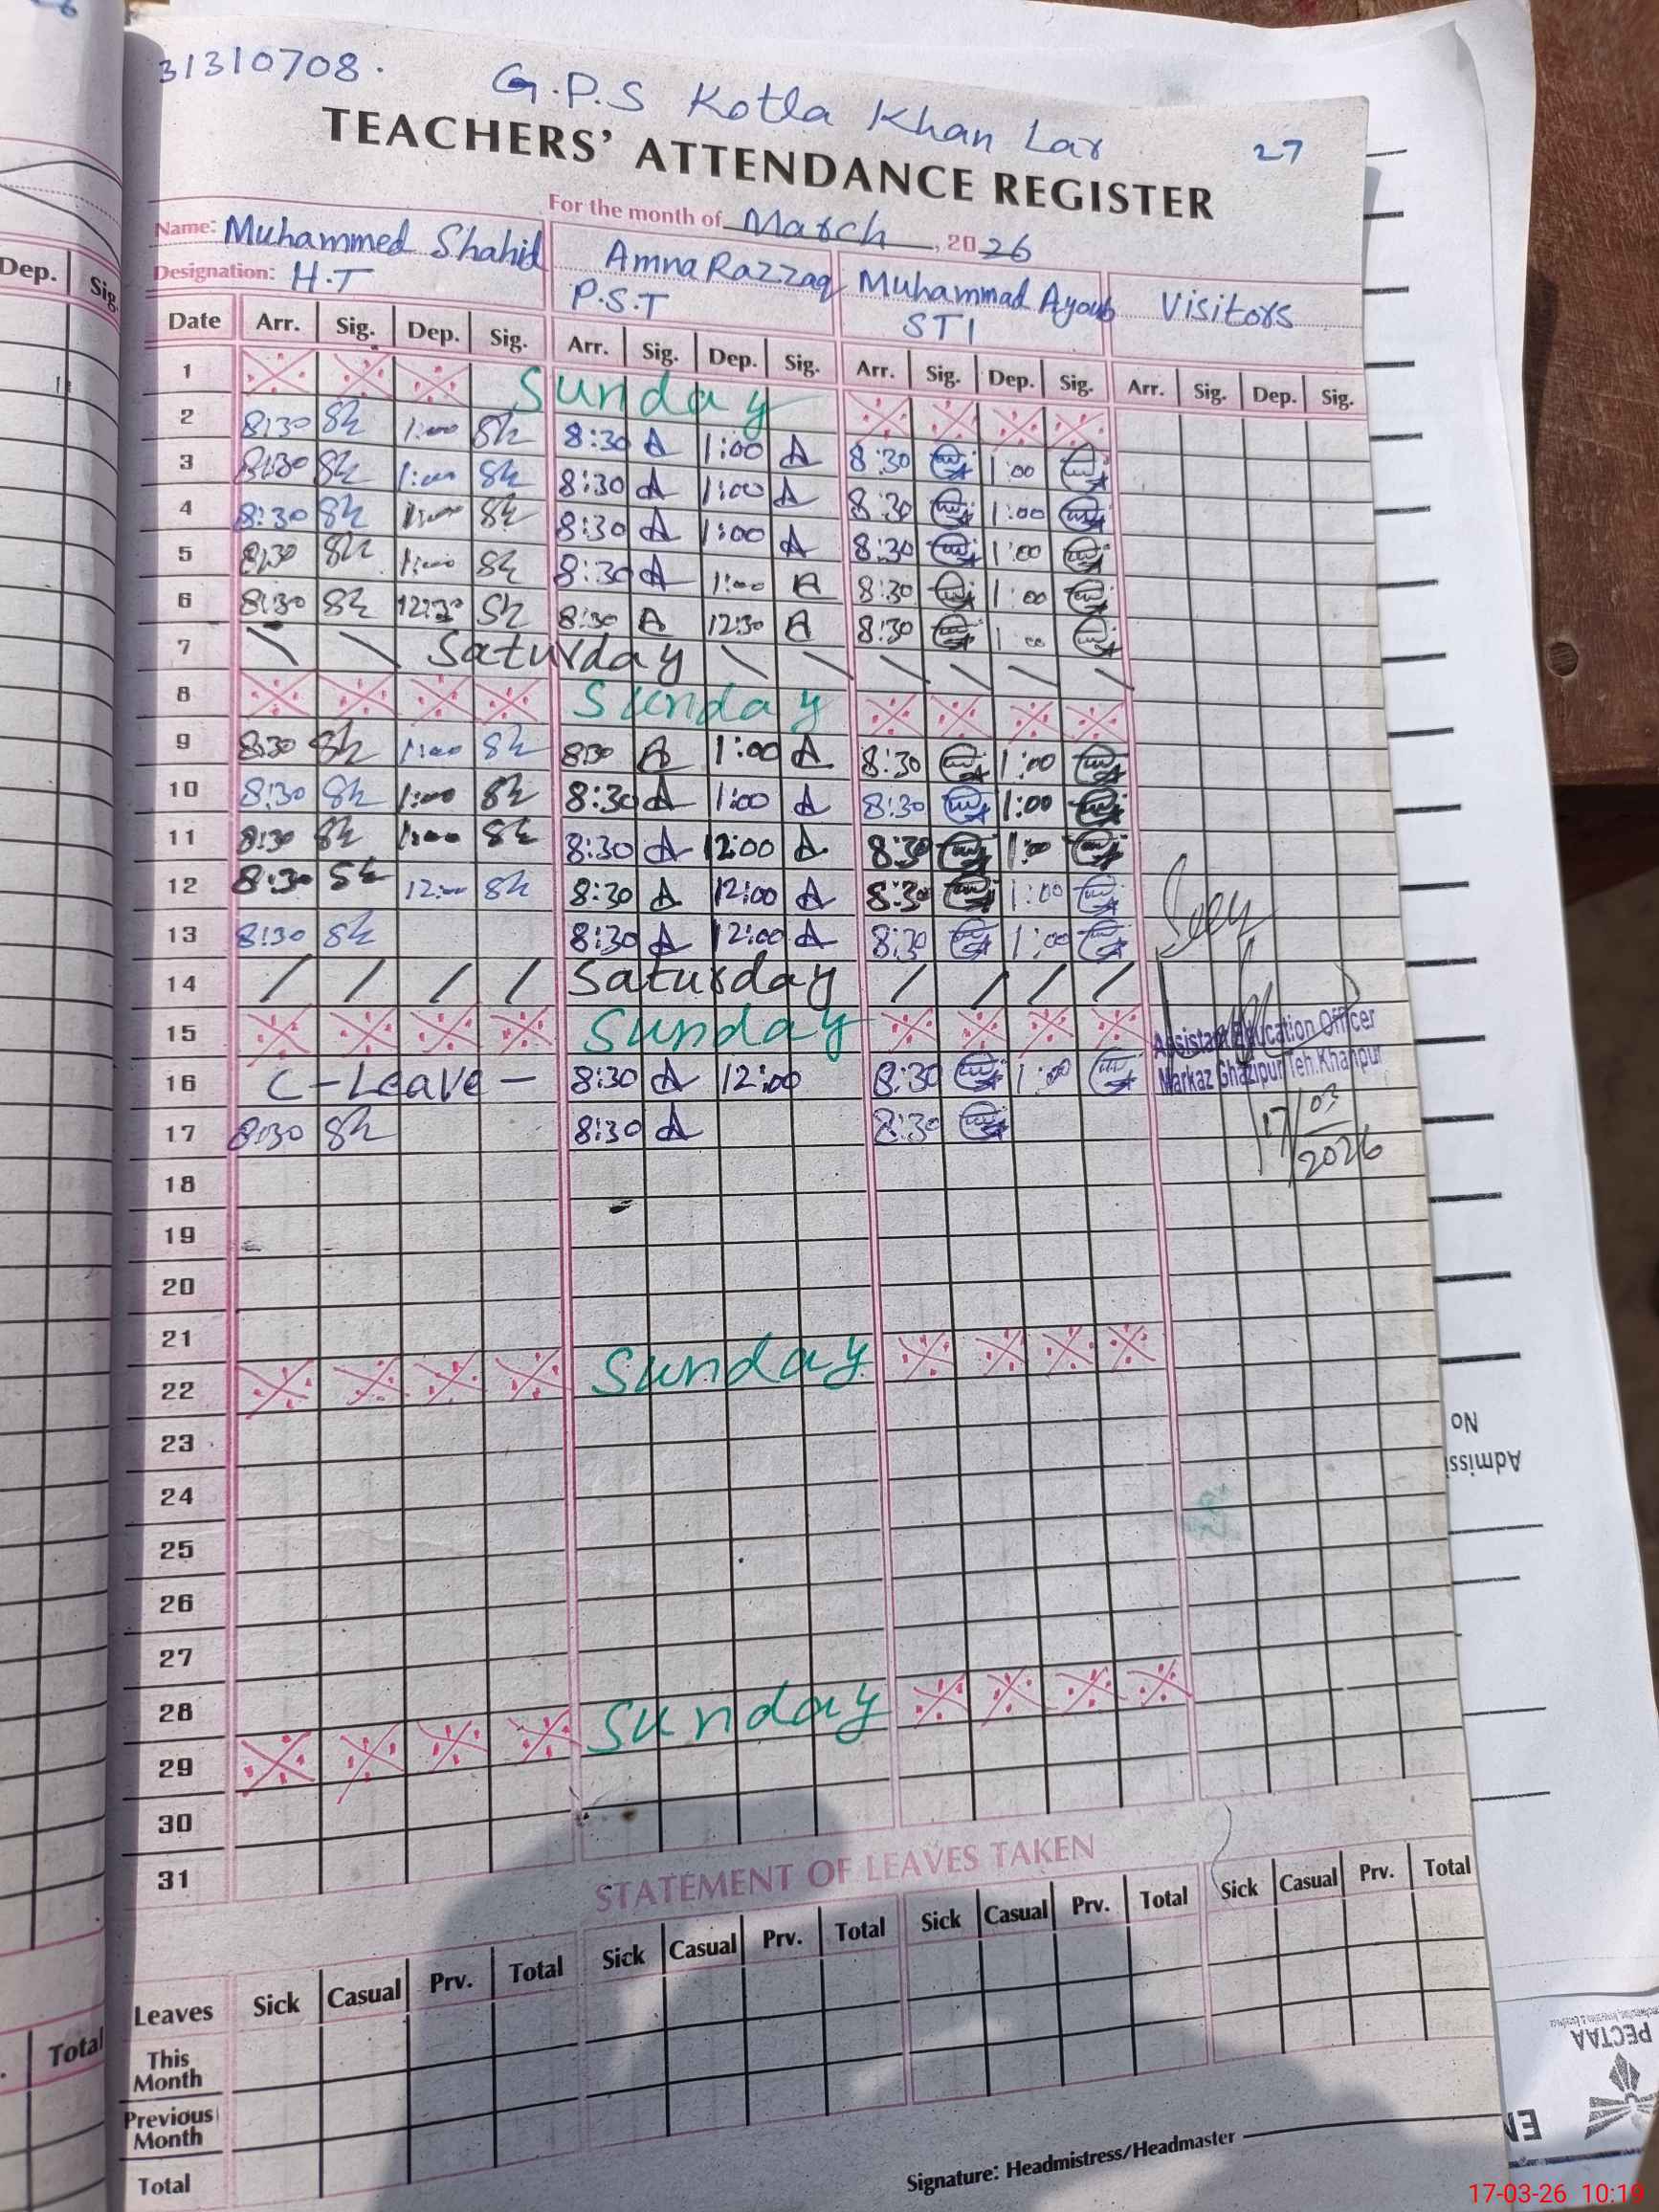 31310708.
G.P.S Kotla Khan Lar
27
TEACHERS' ATTENDANCE REGISTER
For the month of March, 2026
Name: Muhammed Shahid Amna Razzaq Muhammad Ayoub Visitors
Designation: H.T P.S.T STI
Date Arr. Sig. Dep. Sig. Arr. Sig. Dep. Sig. Arr. Sig. Dep. Sig. Arr. Sig. Dep. Sig.
1 Sunday
2 8:30 Sh 1:00 Sh 8:30 A 1:00 A 8:30 1:00
3 8:30 Sh 1:00 Sh 8:30 A 1:00 A 8:30 1:00
4 8:30 Sh 1:00 Sh 8:30 A 1:00 A 8:30 1:00
5 8:30 Sh 1:00 Sh 8:30 A 1:00 A 8:30 1:00
6 8:30 Sh 12:30 Sh 8:30 A 12:30 A 8:30 1:00
7 Saturday
8 Sunday
9 8:30 Sh 1:00 Sh 8:30 A 1:00 A 8:30 1:00
10 8:30 Sh 1:00 Sh 8:30 A 1:00 A 8:30 1:00
11 8:30 Sh 1:00 Sh 8:30 A 12:00 A 8:30 1:00
12 8:30 Sh 12:00 Sh 8:30 A 12:00 A 8:30 1:00
13 8:30 Sh 8:30 A 12:00 A 8:30 1:00
14 Saturday
15 Sunday
Assistant Education Officer
16 C-Leave- 8:30 A 12:00 8:30 1:00
Markaz Ghazipur Teh. Khanpur
17 8:30 Sh 8:30 A 8:30
17/03
2026
18
19
20
21
22 Sunday
23
24
25
26
27
28
29 Sunday
30
31
STATEMENT OF LEAVES TAKEN
Leaves Sick Casual Prv. Total Sick Casual Prv. Total Sick Casual Prv. Total Sick Casual Prv. Total
This Month
Previous Month
Total
Signature: Headmistress/Headmaster
Dep. Sig.
Total
No
Admiss
PECTAA
17-03-26 10:19